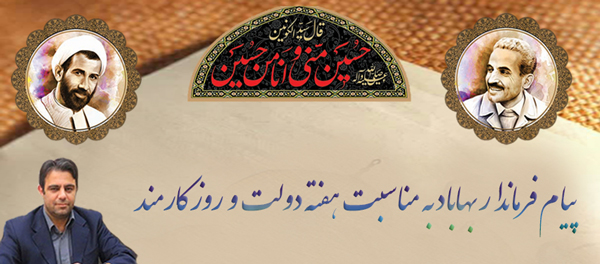 قال سید الکونین
حسین منی و انا من حسین
پیام فرماندار بهاباد به مناسبت هفته دولت و روز کارمند